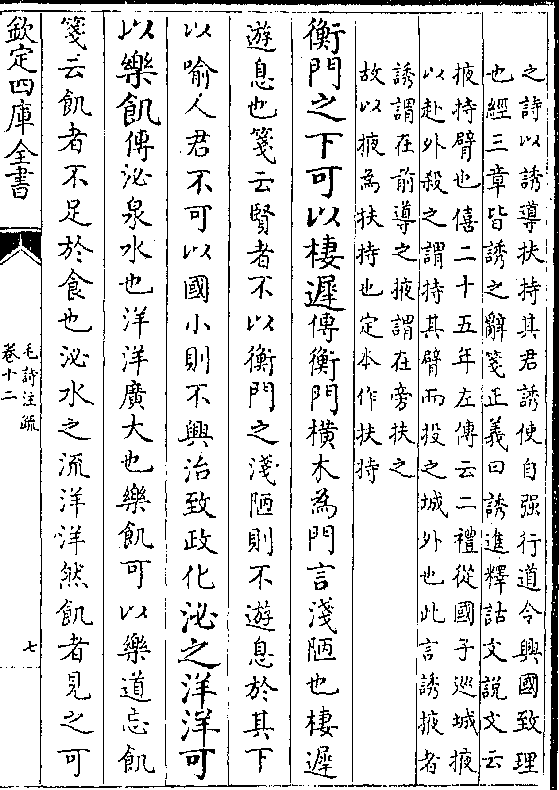 之詩以誘導扶持其君誘使自强行道令興國致理
也經三章皆誘之辭箋正義曰誘進釋詁文說文云
掖持臂也僖二十五年左傳云二禮從國子巡城掖
以赴外殺之謂持其臂而投之城外也此言誘掖者
誘謂在前導之掖謂在旁扶之
故以掖為扶持也定本作扶持
衡門之下可以棲遲傳衡門横木為門言淺陋也棲遲
遊息也箋云賢者不以衡門之淺陋則不遊息於其下
以喻人君不可以國小則不興治致政化泌之洋洋可
以樂飢傳泌泉水也洋洋廣大也樂飢可以樂道忘飢
箋云飢者不足於食也泌水之流洋洋然飢者見之可
欽定四庫全書
毛詩注疏
卷十二
七